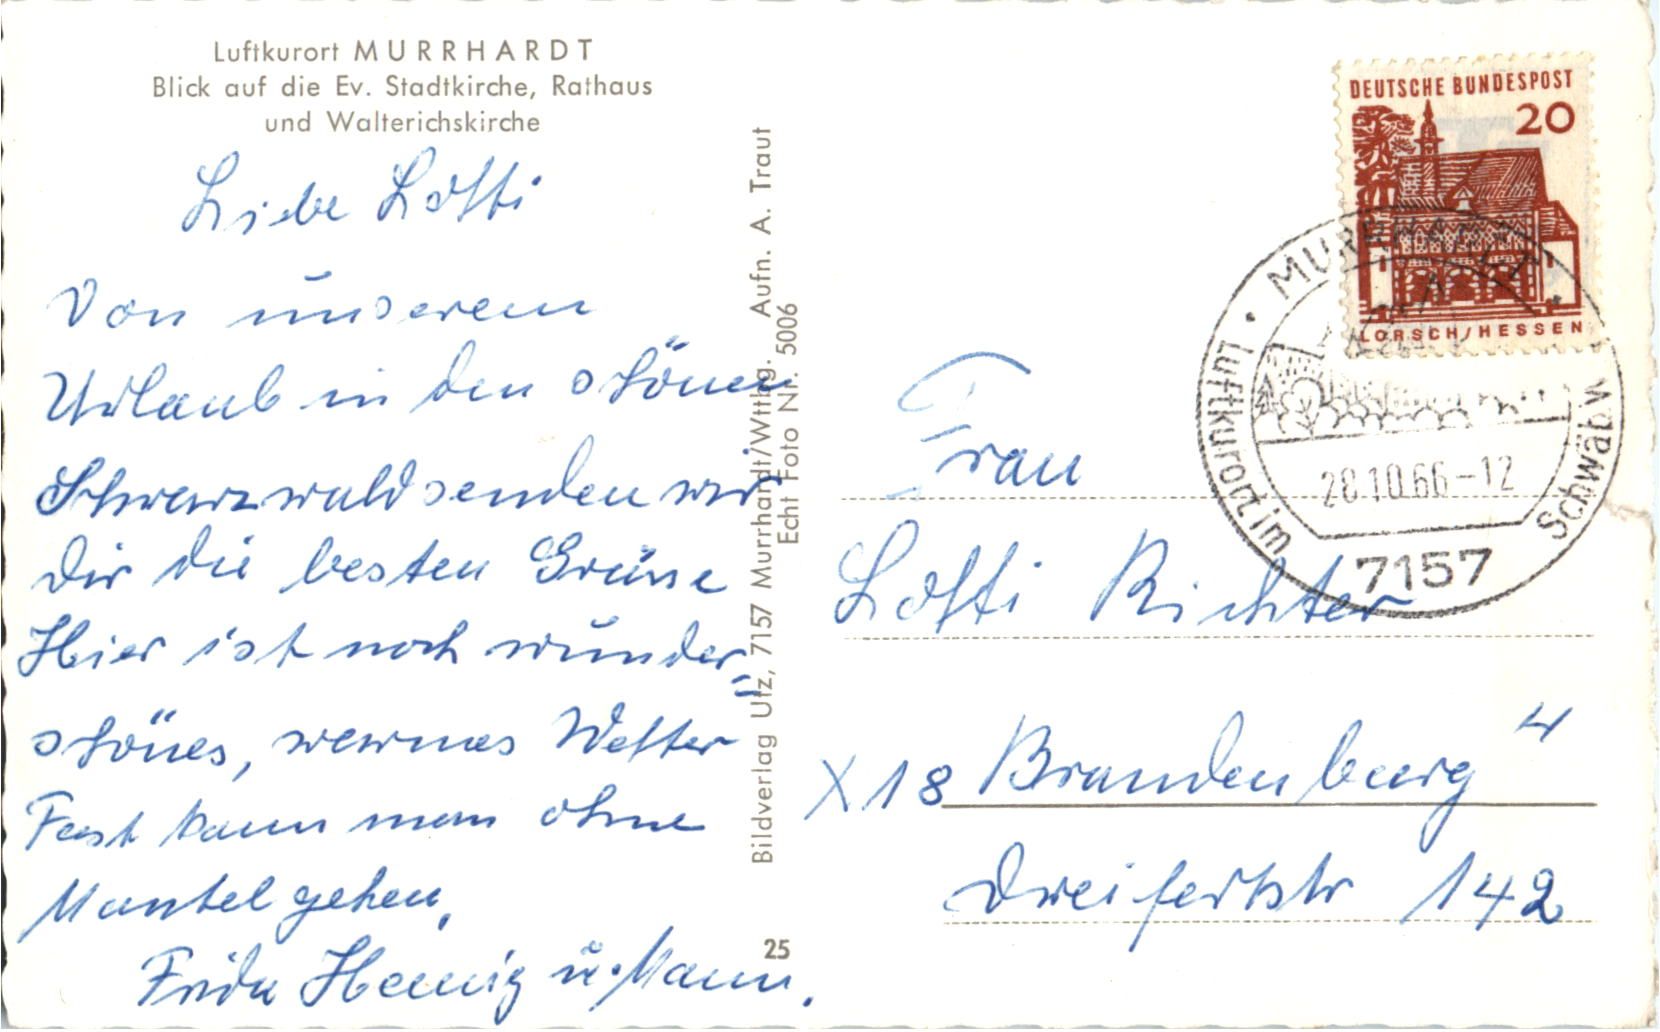 Luftkurort MURRHARDT
Blick auf die Ev. Stadtkirche, Rathaus
und Walterichskirche
Liebe Lotti
Von unserem
Urlaub in den schönen
Schwarzwald senden wir
Dir die besten Grüsse
Hier ist noch wunder-
schönes, warmes Wetter
Fast kann man ohne
Mantel gehen,
Frida Hennig u. Mann.
Bildverlag Utz, 7157 Murrhardt/Wttbg. Aufn. A. Traut
Echt Foto Nr. 5006
25
DEUTSCHE BUNDESPOST
20
LORSCH/HESSEN
MURRHARDT
Luftkurort im Schwäb. W
28.10.66-12
7157
Frau
Lotti Richter
X 18 Brandenburg 4
Dreifertstr 142